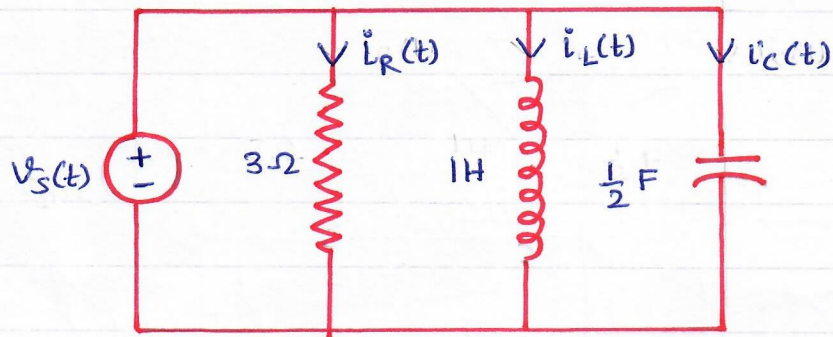 i_R(t) i_L(t) i_C(t)
V_S(t) + - 3Ω 1H 1/2 F